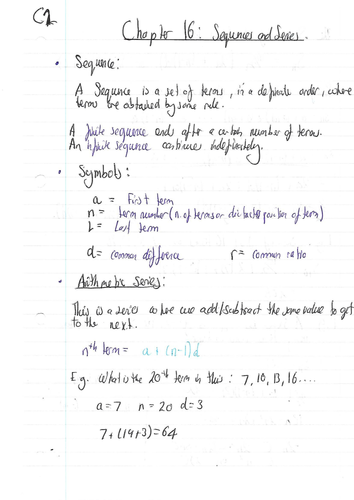 C2
Chapter 16: Sequences and Series.
• Sequence:
A Sequence is a set of terms, in a definite order, where
terms are obtained by some rule.
A finite sequence ends after a certain number of terms.
An infinite sequence continues indefinitely.
• Symbols:
a = First term
n = term number (n. of terms or position of term)
L = Last term
d = common difference r = common ratio
• Arithmetic Series:
This is a series where we add/subtract the same value to get
to the next.
nth term = a + (n-1)d
E.g. What is the 20th term in this: 7, 10, 13, 16....
a = 7 n = 20 d = 3
7+(19+3)=64